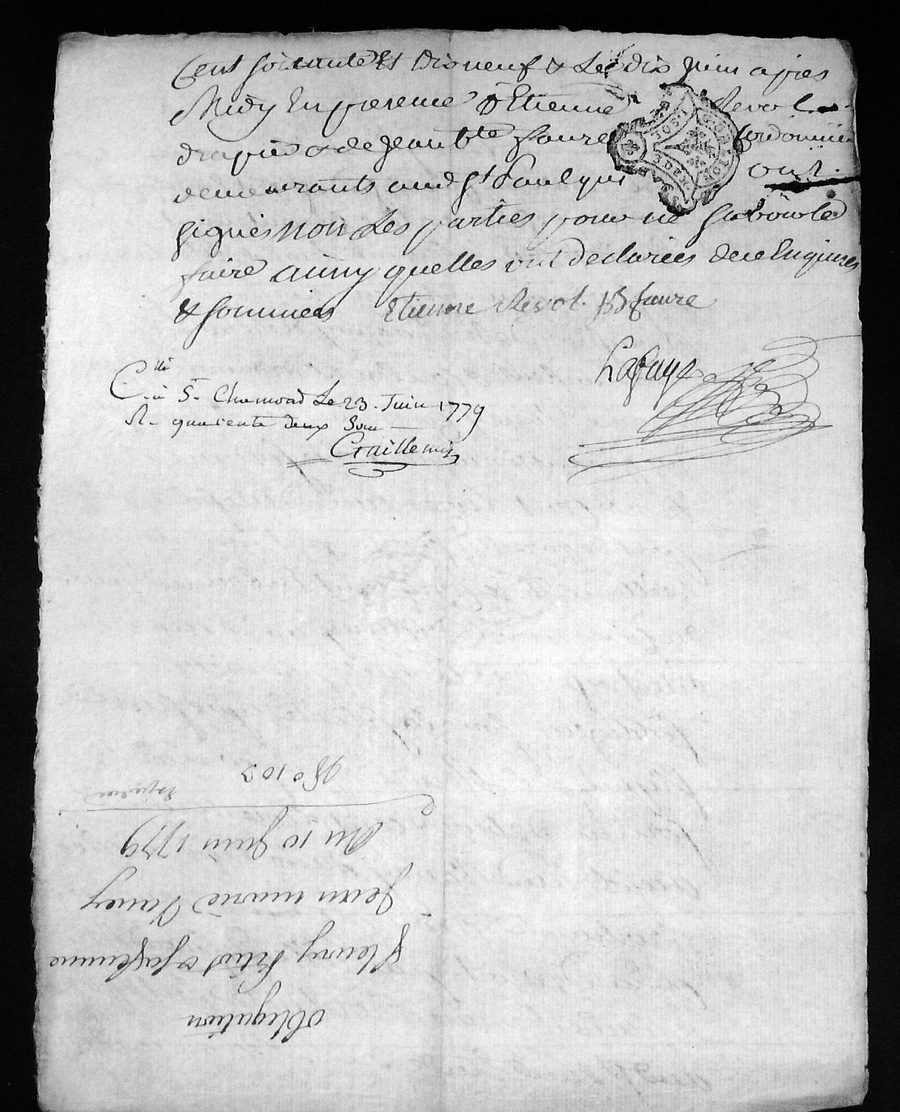 Cent soixante et Dix neuf & Le dix Juin apres
Midy En presence d'Etienne Revol
drapier & de Jean bte faure Cordonnier
demeurants aud St Paul qui ont
signés non Les parties pour ne sçavoir Le
faire ainsy quelles ont declarées de ce Enquises
& sommées Etienne Revol. JB faure
Lafay
C.lé à St Chamond Le 23. Juin 1779
R. quarente deux Sous
Obligation
fleury & sa femme
Jean marie
Du 10 Juin 1779
No 103